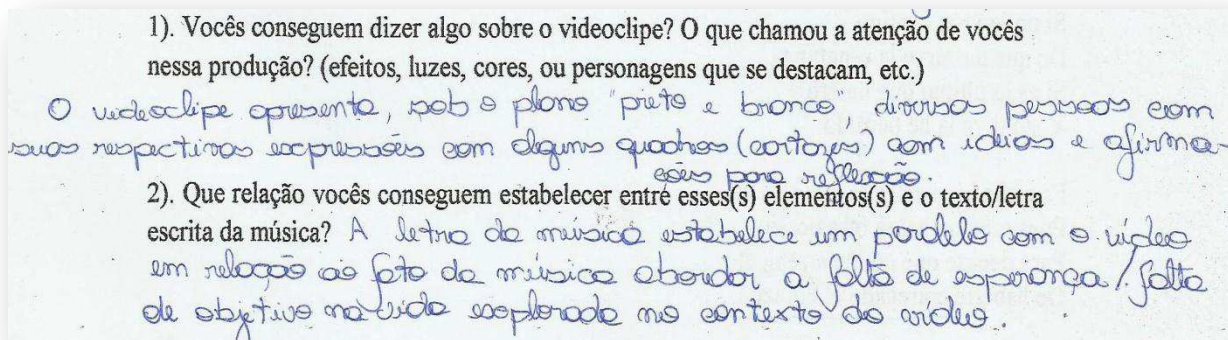 1). Vocês conseguem dizer algo sobre o videoclipe? O que chamou a atenção de vocês
nessa produção? (efeitos, luzes, cores, ou personagens que se destacam, etc.)
O videoclipe apresenta, sob o plano "preto e branco", diversas pessoas com
suas respectivas expressões com alguns quadros (cartazes) com idéias e afirma-
ções para reflexão.
2). Que relação vocês conseguem estabelecer entre esses(s) elementos(s) e o texto/letra
escrita da música? A letra da música estabelece um paralelo com o vídeo
em relação ao fato da música abordar a falta de esperança / falta
de objetivo na vida explorada no contexto do vídeo.